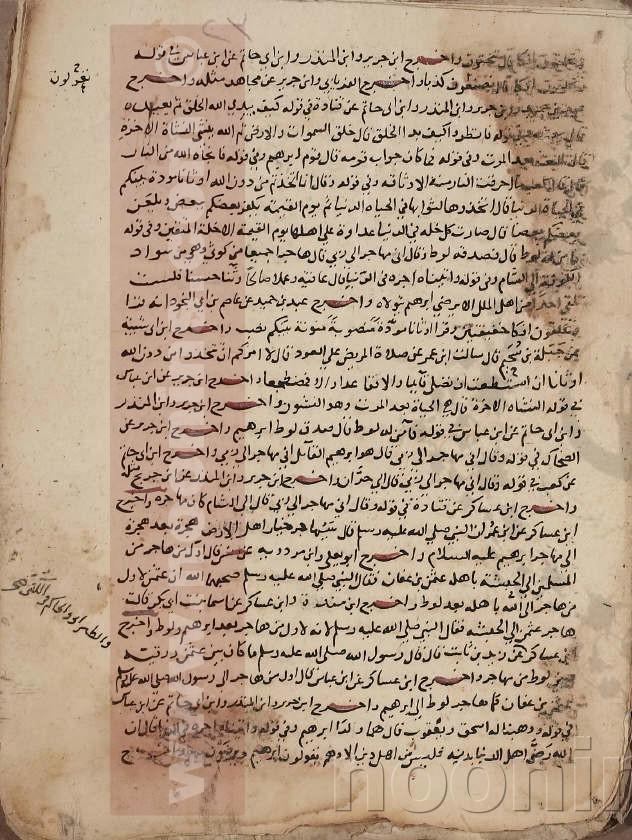 وتخلقون افكا قال تنحتون واخرج ابن جرير وابن المنذر وابن ابي حاتم عن ابن عباس في قوله
وتخلقون افكا قال تصنعون كذبا واخرج الفريابي وابن جرير عن مجاهد مثله واخرج
تقولون
وابن جرير وابن المنذر وابن ابي حاتم عن قتادة في قوله كيف يبدئ الله الخلق ثم يعيده
قوله فانظروا كيف بدا الخلق قال خلق السموات والارض ثم الله ينشئ النشاة الاخرة
بعد الموت وفي قوله فما كان جواب قومه قال قوم ابرهيم وفي قوله فانجاه الله من النار
قال ما احرقت النار منه الا وثاقه وفي قوله وقال انما اتخذتم من دون الله اوثانا مودة بينكم
في الحياة الدنيا قال اتخذوها لثوابها في الحياة الدنيا ثم يوم القيمة يكفر بعضكم ببعض ويلعن
بعضكم بعضا قال صارت كل خلة في الدنيا عداوة على اهلها يوم القيمة الا خلة المتقين وفي قوله
فامن له لوط قال فصدقه لوط وقال اني مهاجر الى ربي قال هاجرا جميعا من كوثى وهي من سواد
الكوفة الى الشام وفي قوله واتيناه اجره في الدنيا قال عافية وعملا صالحا وثناء حسنا فلست
تلقى احدا من اهل الملل الا يرضى ابرهيم يتولاه واخرج عبد بن حميد عن عاصم بن ابي النجود انه قرا
وتخلقون افكا خفيفتين وقرا اوثانا مودة منصوبة منونة بينكم نصب واخرج ابن ابي شيبة
عن جبلة بن سحيم قال سالت ابن عمر عن صلاة المريض على العود قال لا امركم ان تتخذوا من دون الله
اوثانا ان استطعت ان تصلي قائما والا فقاعدا والا فمضطجعا واخرج ابن جرير عن ابن عباس
في قوله النشاة الاخرة قال هي الحياة بعد الموت وهو النشور واخرج ابن جرير وابن المنذر
وابن ابي حاتم عن ابن عباس في قوله فامن له لوط قال صدق لوط ابرهيم واخرج ابن جرير عن
الضحاك في قوله وقال اني مهاجر الى ربي قال هو ابرهيم القائل اني مهاجر الى ربي واخرج ابن ابي حاتم
عن كعب في قوله وقال اني مهاجر الى ربي قال الى حران واخرج ابن جرير وابن المنذر عن ابن جريج مثله
واخرج ابن عساكر عن قتادة في قوله وقال اني مهاجر الى ربي قال الى الشام كان مهاجره واخرج
ابن عساكر عن ابن عمر ان النبي صلى الله عليه وسلم قال سيهاجر خيار اهل الارض هجرة بعد هجرة
الى مهاجر ابرهيم عليه السلام واخرج ابو يعلى وابن مردويه عن انس قال اول من هاجر من
المسلمين الى الحبشة باهله عثمن بن عفان فقال النبي صلى الله عليه وسلم صحبهما الله ان عثمن لاول
من هاجر الى الله باهله بعد لوط واخرج ابن مندة وابن عساكر عن اسما بنت ابي بكر قالت
هاجر عثمن الى الحبشة فقال النبي صلى الله عليه وسلم انه لاول من هاجر بعد ابرهيم ولوط واخرج
ابن عساكر عن زيد بن ثابت قال قال رسول الله صلى الله عليه وسلم ما كان بين عثمن ورقية
والطبراني والحاكم في الكنى
وبين لوط من مهاجر واخرج ابن عساكر عن ابن عباس قال اول من هاجر الى رسول الله صلى الله عليه وسلم
عثمن بن عفان كما هاجر لوط الى ابرهيم واخرج ابن جرير وابن المنذر وابن ابي حاتم عن ابن عباس
في قوله ووهبنا له اسحق ويعقوب قال هما ولدا ابرهيم وفي قوله واتيناه اجره في الدنيا قال ان
الله رضى اهل الاديان بدينه فليس من اهل دين الا وهم يقولون ابرهيم ويرضون به واخرج
noonin